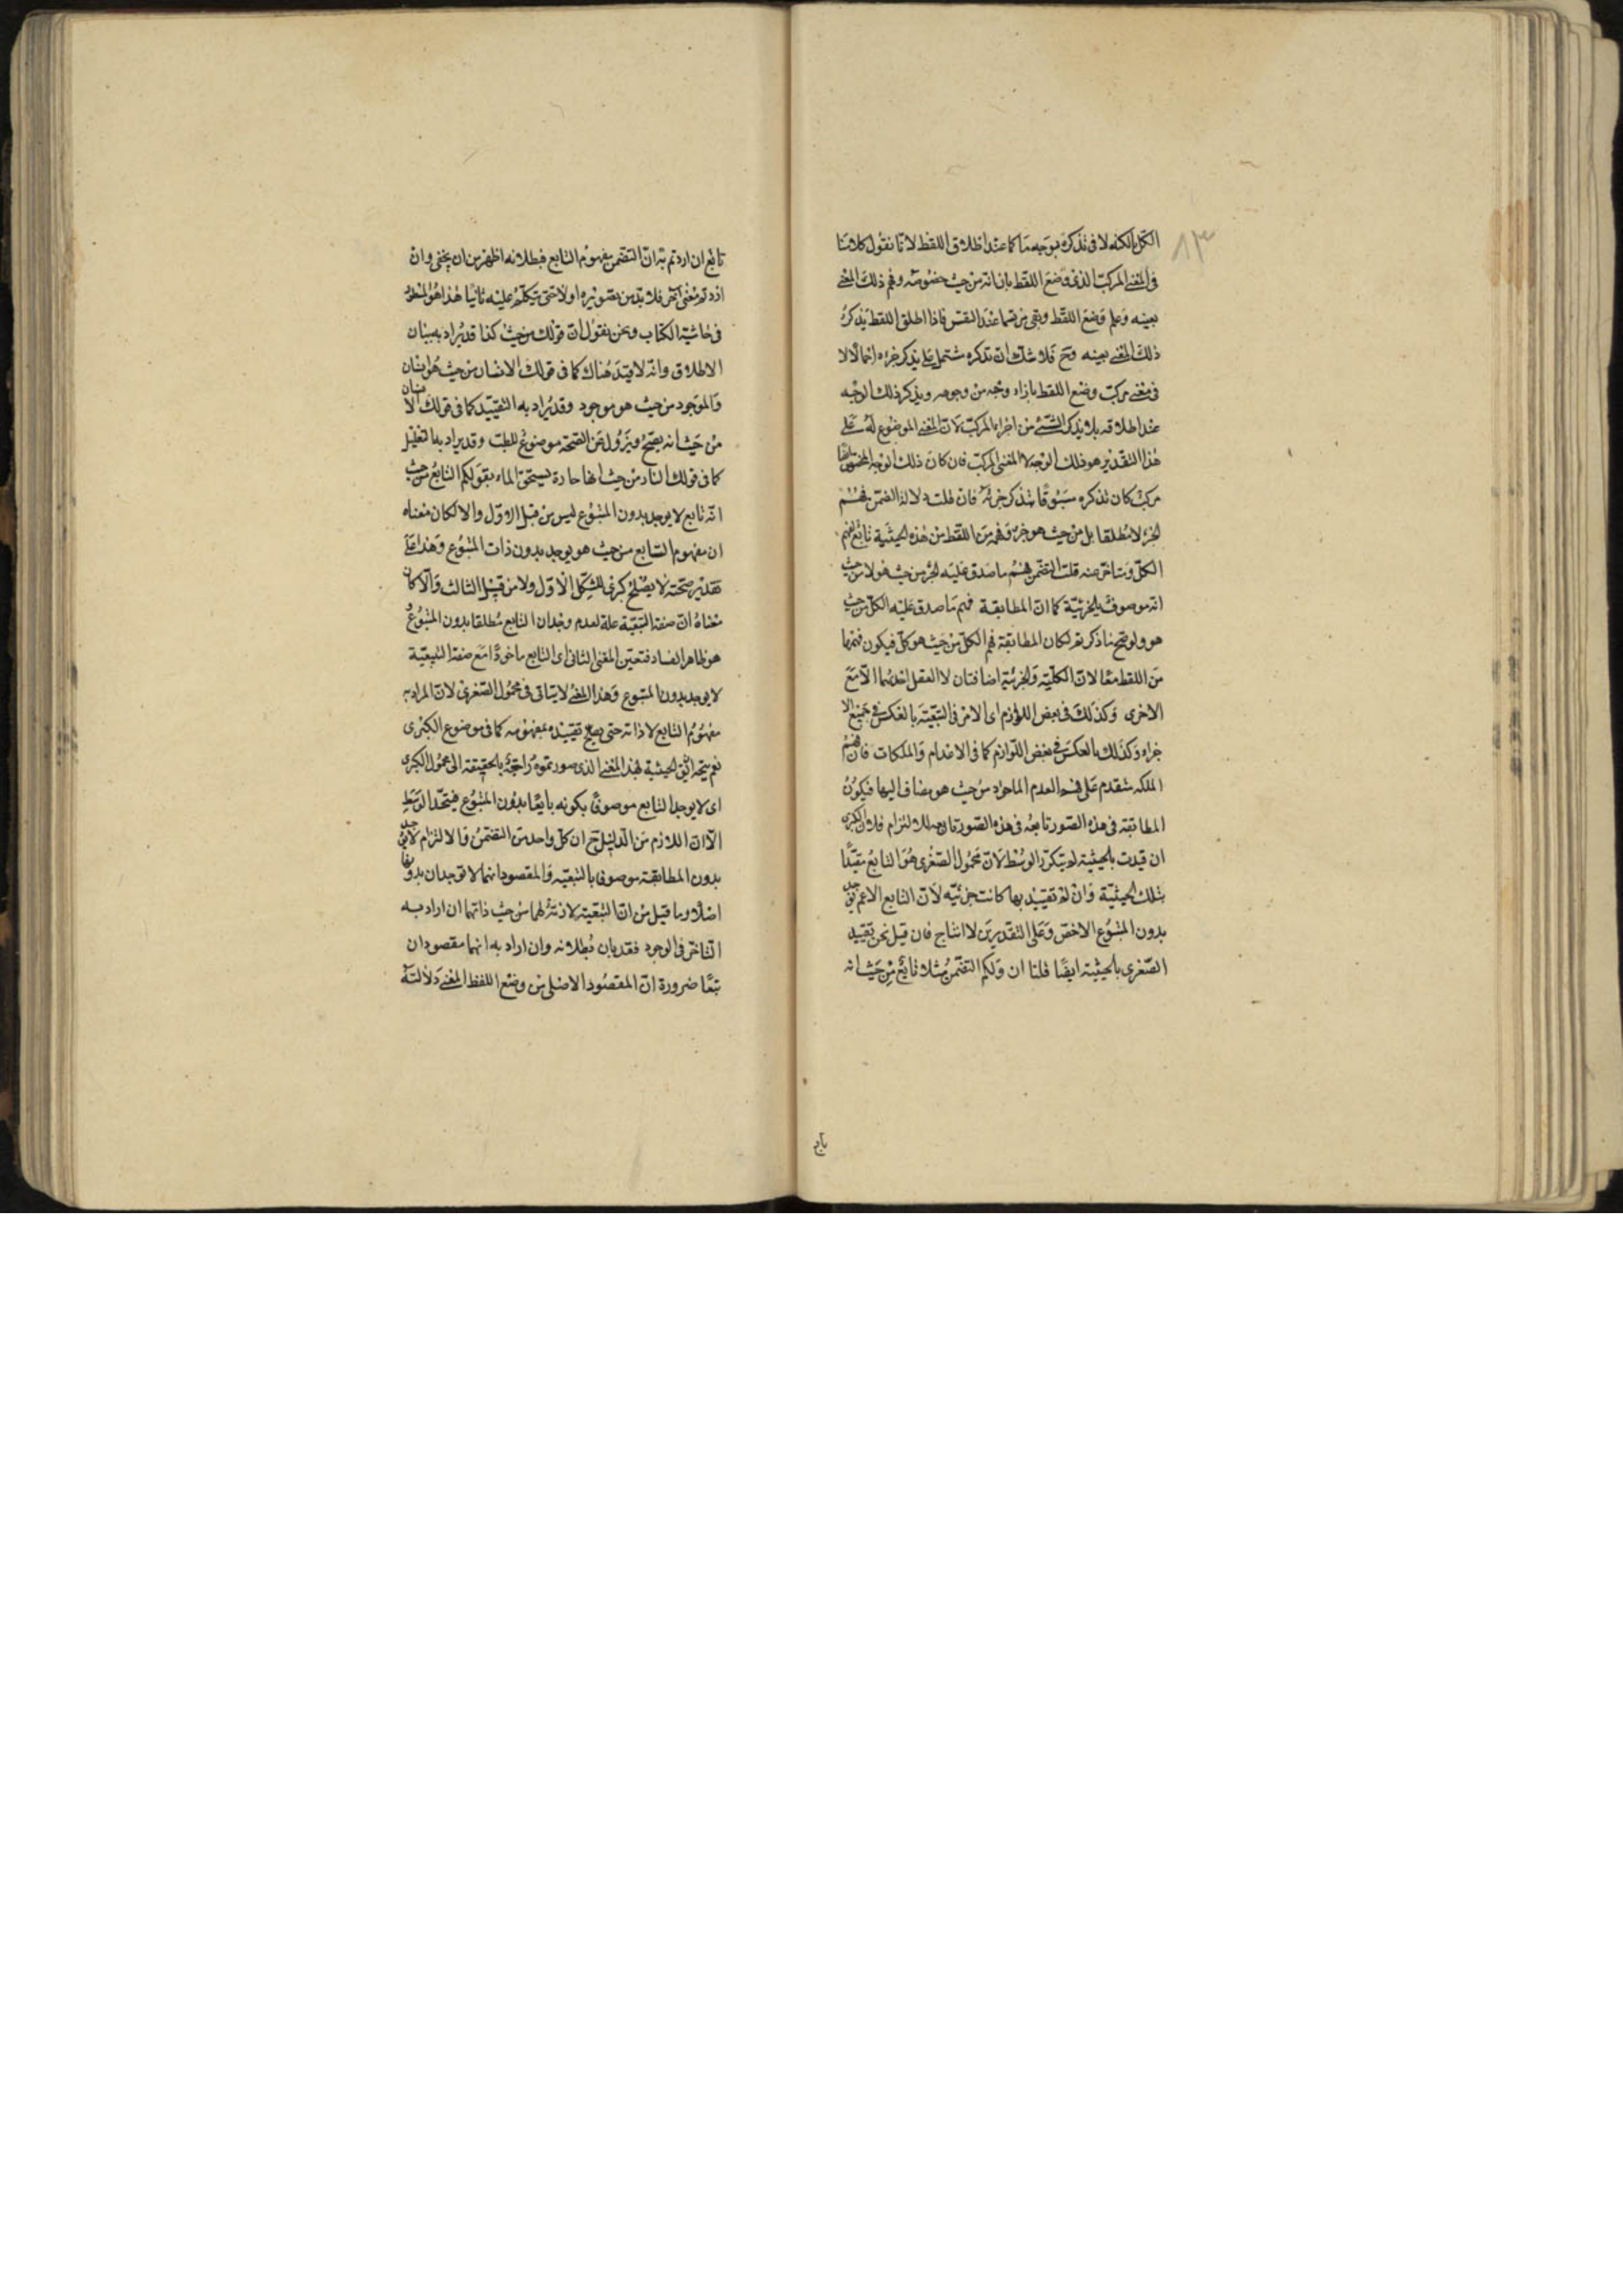 ٨٣
الكل بالكنه لا فى تذكره بوجه ما كما عند اطلاق اللفظ لانا نقول كلامنا
فى المعنى المركب الذى وضع اللفظ بازائه من حيث خصوصه وفهم ذلك المعنى
بعينه وعلم وضع اللفظ وبقى مرتسما عند النفس فاذا اطلق اللفظ يذكر
ذلك المعنى بعينه وح فلا شك ان تذكره مشتمل على تذكر جزءه اجمالا لا
فى معنى مركب وضع اللفظ بازاء وجه من وجوهه ويذكر ذلك الوجه
عند اطلاقه بلا تذكر لشئ من اجزاء المركب لان المعنى الموضوع له على
هذا التقدير هو ذلك الوجه لا المعنى المركب فان كان ذلك الوجه ايضا
مركبا كان تذكره مسبوقا بتذكر جزئه فان قلت دلالة التضمن فهم
الجزء لا مطلقا بل من حيث هو جزء وفهمه من اللفظ من هذه الحيثية تابع لفهم
الكل ومتاخر عنه قلت التضمن فهم ما صدق عليه الجزء من حيث هو لا من حيث
انه موصوف بالجزئية كما ان المطابقة فهم ما صدق عليه الكل من حيث
هو ولو صح ما ذكرتم لكان المطابقة فهم الكل من حيث هو كل فيكون فهمهما
من اللفظ معا لان الكلية والجزئية اضافتان لا تعقل احديهما الا مع
الاخرى وكذلك فى بعض اللوازم اى الامر فى التبعية بالعكس فى جميع الا
جزاء وكذلك بالعكس فى بعض اللوازم كما فى الاعدام والملكات فان فهم
الملكة متقدم على فهم العدم الماخوذ من حيث هو مضاف اليها فيكون
المطابقة فى هذه الصور تابعة فى هذه الصور تابعة للالتزام فلان الكبرى
ان قيدت بالحيثية لم يتكرر الوسط لان محمول الصغرى هو التابع مقيدا
بتلك الحيثية وان لم تقييد بها كانت جزئية لان التابع الاعم يوجد
بدون المتبوع الاخص وعلى التقديرين لا انتاج فان قيل نحن نقييد
الصغرى بالحيثية ايضا قلنا ان ولكم التضمن مثلا تابع من حيث انه
تابع
تابع ان اردتم به ان التضمن مفهوم التابع فبطلانه اظهر من ان يخفى وان
اردتم معنى آخر فلا بد من تصويره اولا حتى يتكلم عليه ثانيا هذا هو المسطور
فى حاشية الكتاب ونحن نقول ان قولك من حيث كذا قد يراد به بيان
الاطلاق وانه لا قيد هناك كما فى قولك الانسان من حيث هو انسان
والموجود من حيث هو موجود وقد يراد به التقييد كما فى قولك الانسان
من حيث انه يصح ويزول عن الصحة موضوع للطب وقد يراد به التعليل
كما فى قولك النار من حيث انها حارة تسخن الماء بقولكم التابع من حيث
انه تابع لا يوجد بدون المتبوع ليس من قبيل الاول والا لكان معناه
ان مفهوم التابع من حيث هو يوجد بدون ذات المتبوع وهذا على
تقدير صحته لا يصلح كبرى للشكل الاول ولا من قبيل الثالث والا كان
معناه ان صفة التبعية علة لعدم وجدان التابع مطلقا بدون المتبوع
هو ظاهر الفساد فتعين المعنى الثانى اى التابع ماخوذا مع صفة التبعية
لا يوجد بدون المتبوع وهذا المعنى لا يتاتى فى محمول الصغرى لان المراد به
مفهوم التابع لا ذاته حتى يصلح تقييده بمفهومه كما فى موضوع الكبرى
نعم يتجه ان الحيثية بهذا المعنى الذى صورتموه راجعة بالحقيقة الى محمول الكبرى
اى لا يوجد التابع موصوفا بكونه تابعا بدون المتبوع فيتحد الوسط
الا ان اللازم من الدليل ح ان كل واحد من التضمن والالتزام لا يوجد
بدون المطابقة موصوفا بالتبعية والمقصود انهما لا توجدان بدونها
اصلا وما قيل من ان التبعية لازمة لهما من حيث ذاتهما ان اراد به
التاخر فى الوجود فقد بان بطلانه وان اراد به انهما مقصودان
تبعا ضرورة ان المقصود الاصلى من وضع اللفظ المعنى دلالته